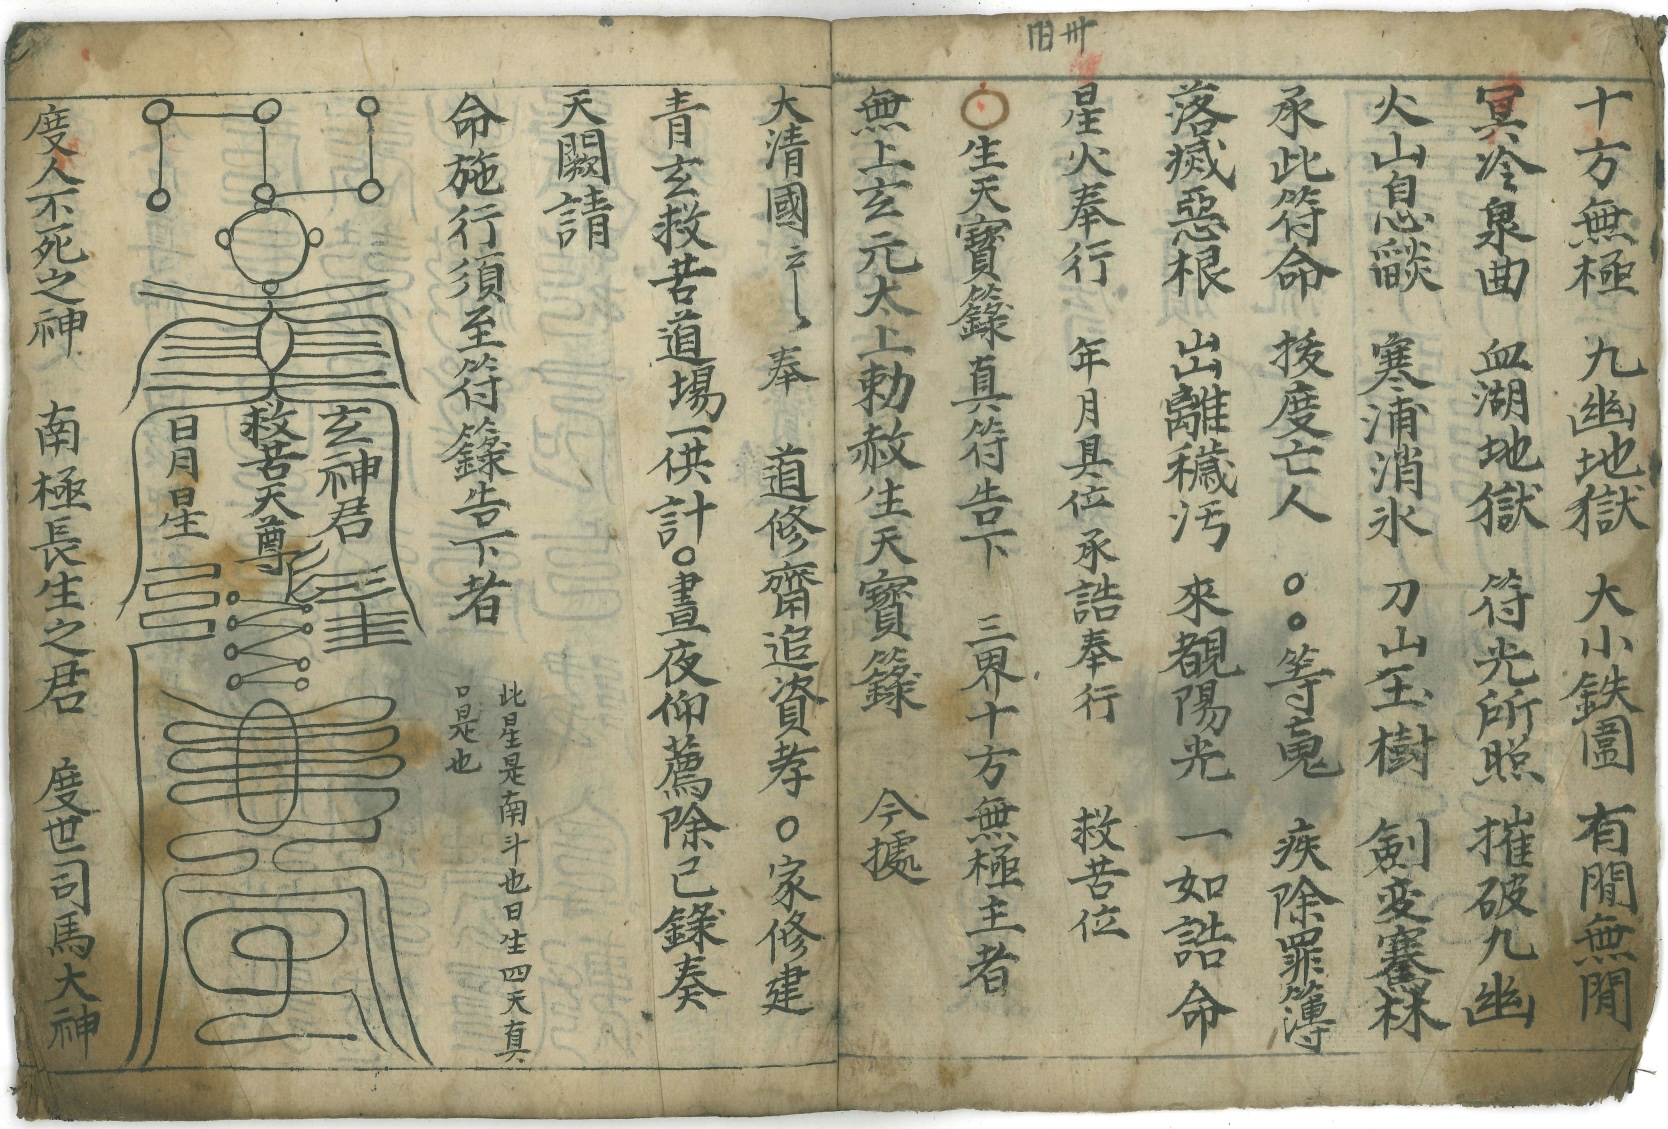 卅
十方無極　九幽地獄　大小鉄圍　有間無間
冥冷泉曲　血湖地獄　符光所照　摧破九幽
火山息燄　寒浦消氷　刀山玉樹　劍变騫林
承此符命　拔度亡人　○○等䰟　疾除罪簿
落滅惡根　出離穢污　來覩陽光　一如誥命
星火奉行　年月具位　承誥奉行　救苦位
○生天寶籙真符告下　三界十方無極主者
無上玄元太上勅赦生天寶籙　今據
大清國云　奉　道修齋追資孝○家修建
青玄救苦道場一供計○晝夜仰薦除已錄奏
天闕請
命施行須至符籙告下者
此星是南斗也日生四天真
口是也
玄神君
救苦天尊
日月星
度人不死之神　南極長生之君　度世司馬大神